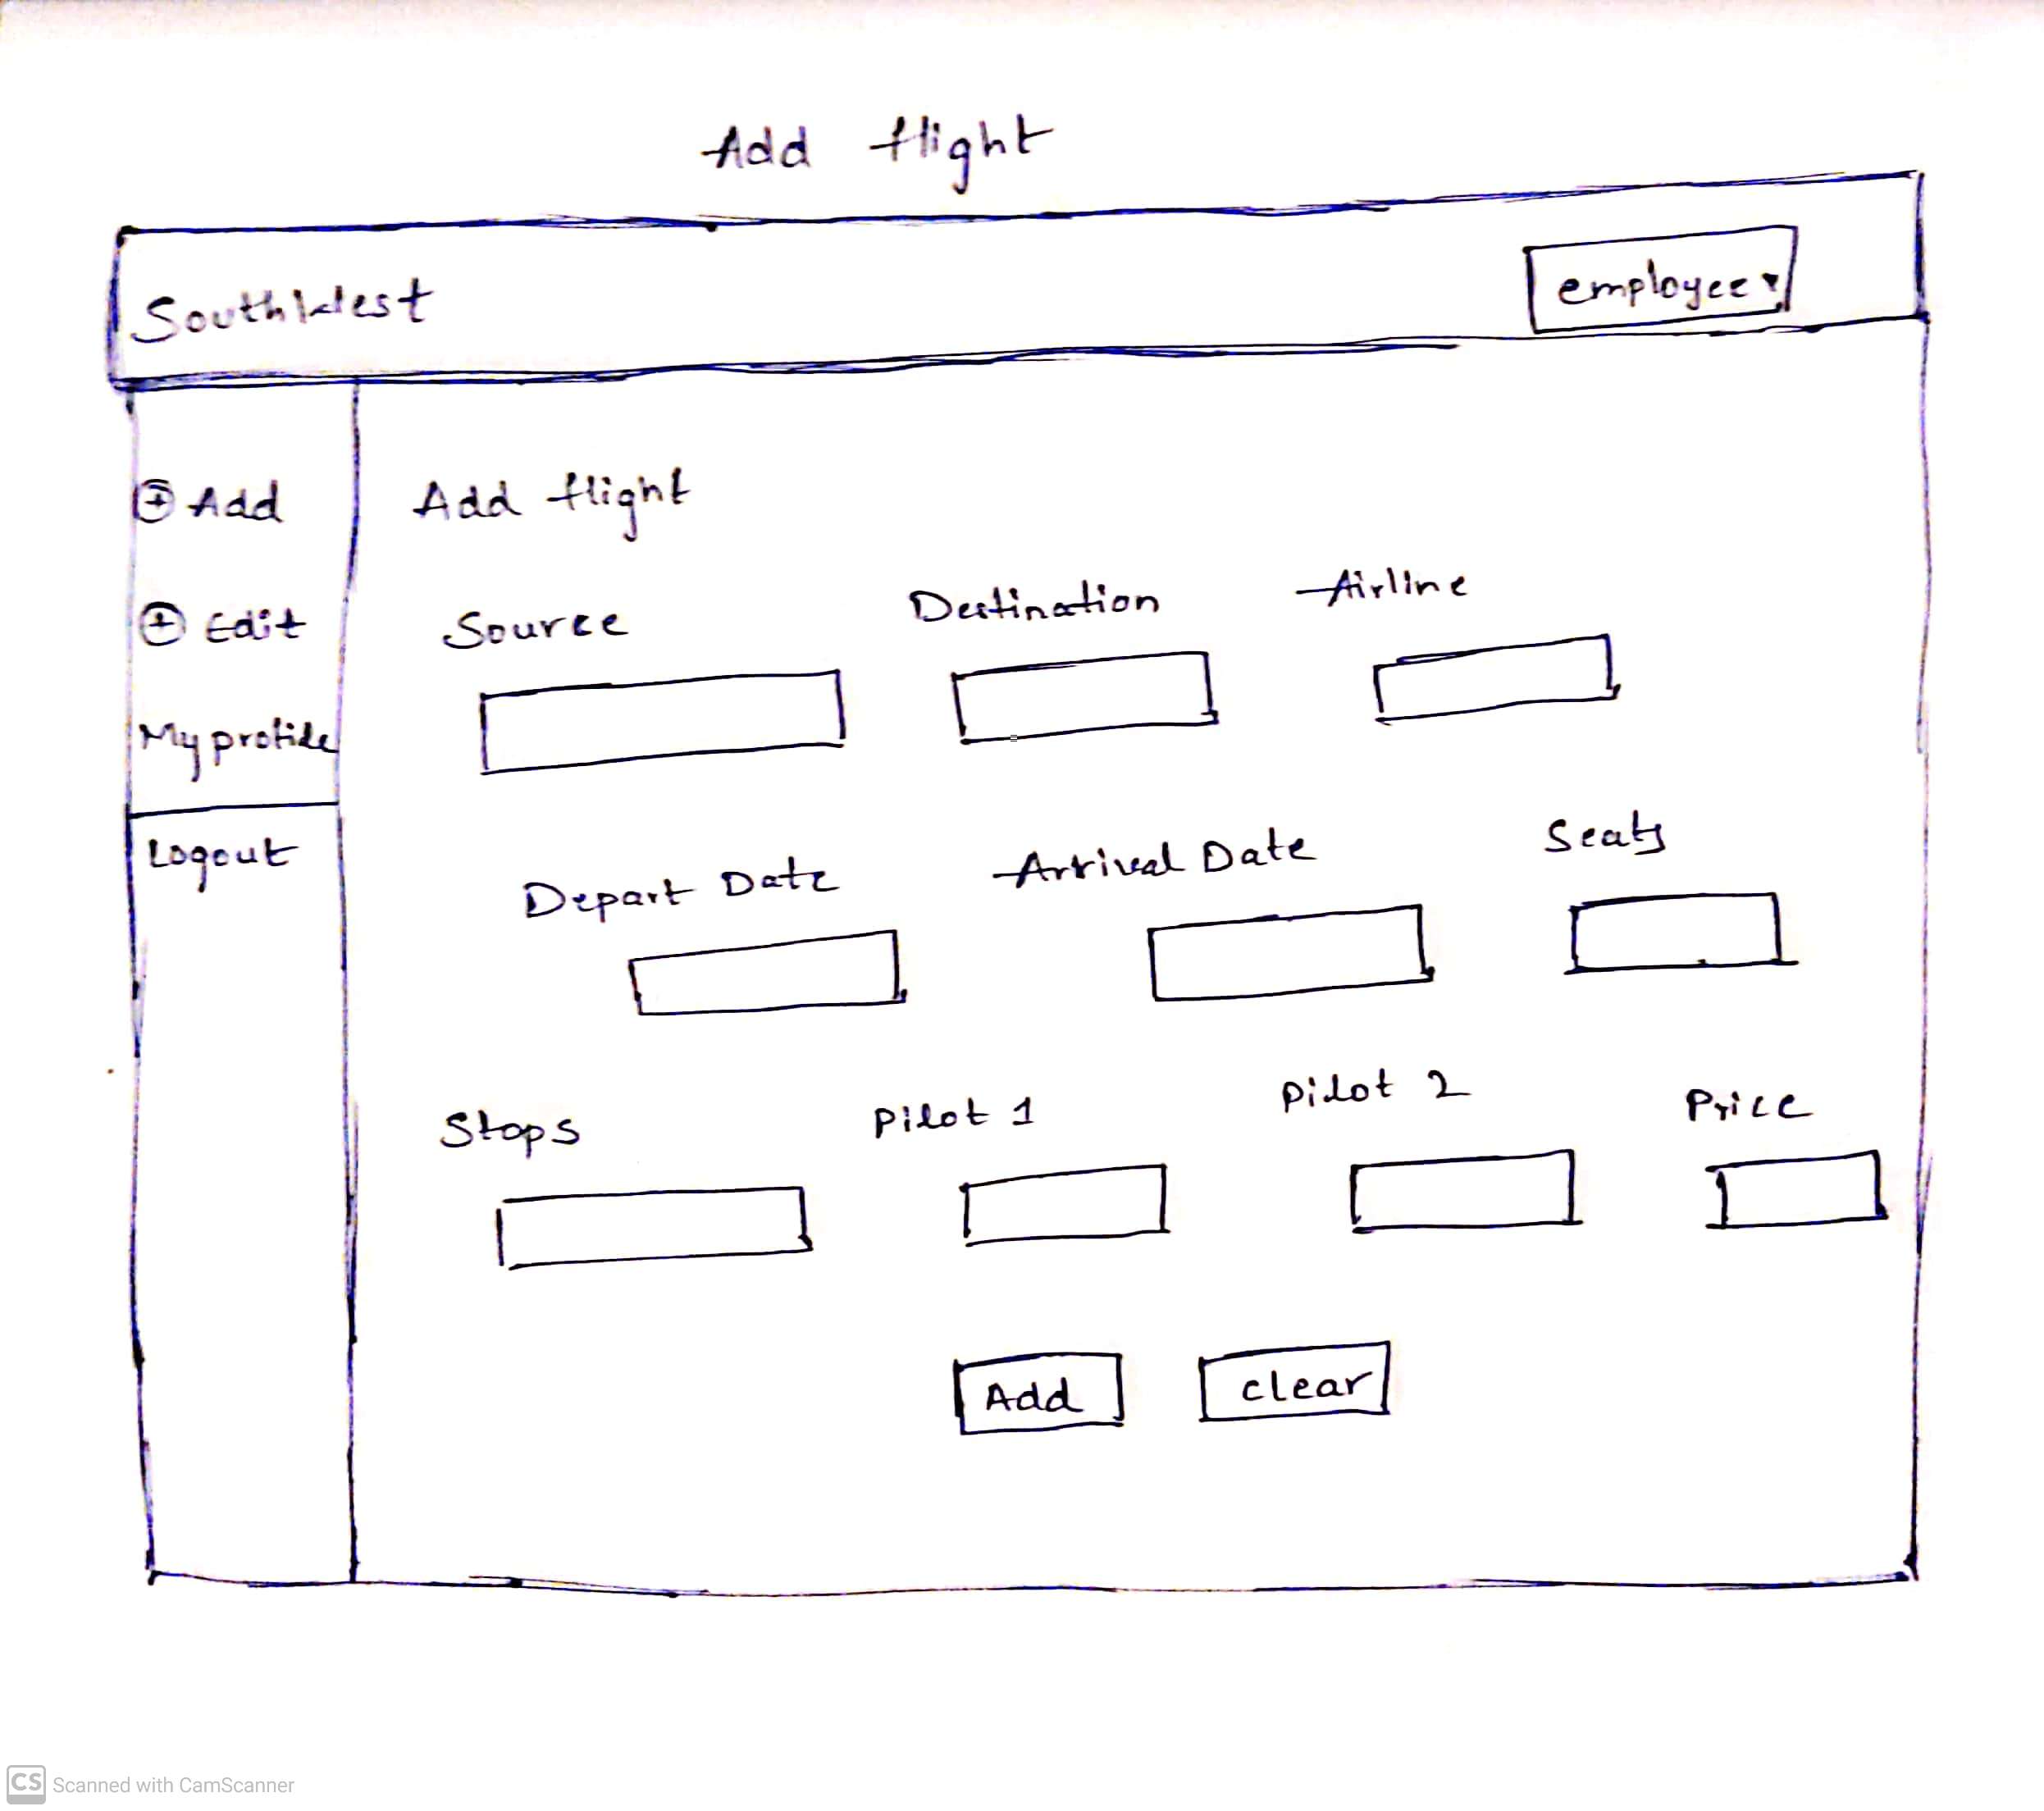 Add flight
SouthWest
employee
Add
Add flight
Edit
My profile
Logout
Source
Destination
Airline
Depart Date
Arrival Date
Seats
Stops
Pilot 1
Pilot 2
Price
Add
clear
CS Scanned with CamScanner